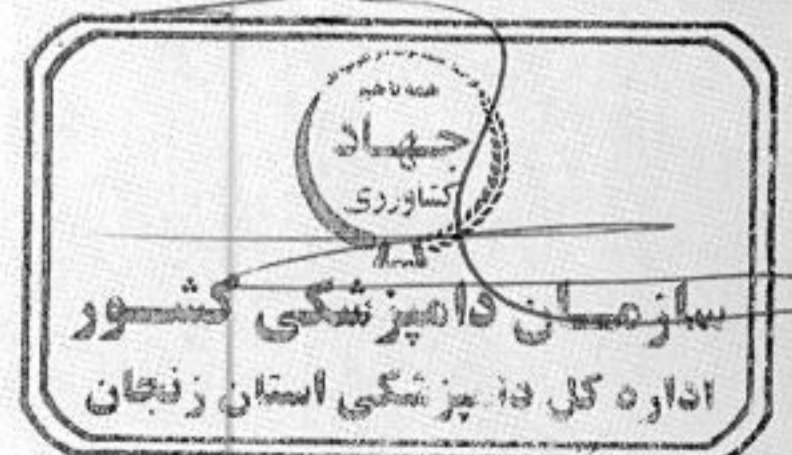 همه با هم
جهاد
کشاورزی
سازمان دامپزشکی کشور
اداره کل دامپزشکی استان زنجان